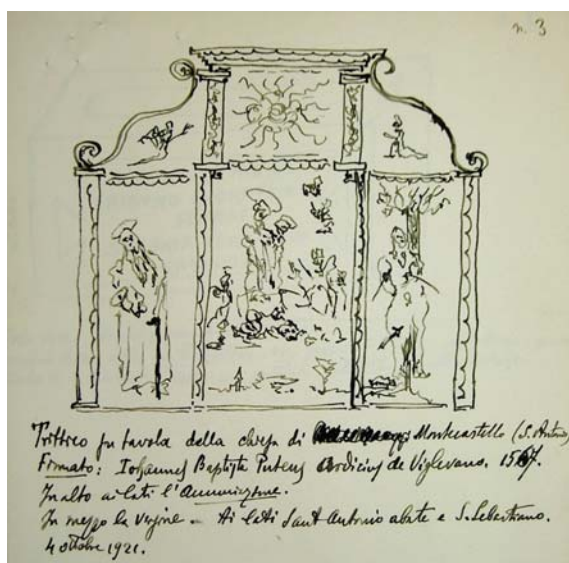 n. 3
Trittico su tavola della chiesa di Montecastello (S. Antonio)
Firmato: Iohannes Baptista Puteus Ardicius de Viglevano. 15
In alto ai lati l'Annunciazione.
In mezzo la vergine - Ai lati Sant Antonio abate e S. Sebastiano.
4 ottobre 1921.